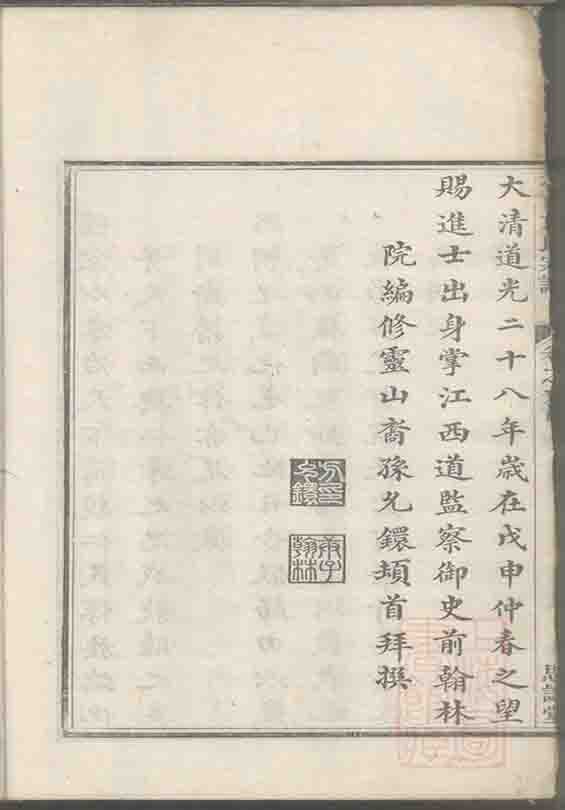 大清道光二十八年歲在戊申仲春之望
賜進士出身掌江西道監察御史前翰林
院編修靈山裔孫允鐶頓首拜撰
方印允鐶
庚子翰林
思誠堂